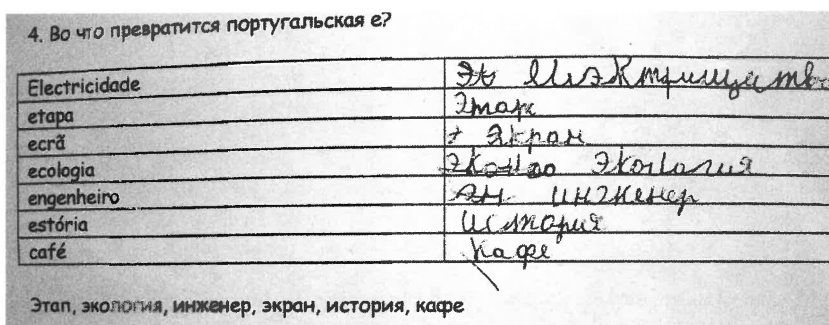 4. Во что превратится португальская е?
Electricidade Эл Илэктрицество
etapa Этап
ecrã э Экран
ecologia Эколо Экология
engenheiro Ан инженер
estória История
café Кафе
Этап, экология, инженер, экран, история, кафе